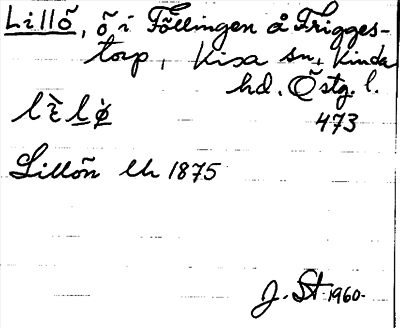 Lillö, ö i Föllingen å Frigges-
torp, Kisa sn, Kinda
hd. Östg. l.
473
Lillön Uh 1875
J. St. 1960.